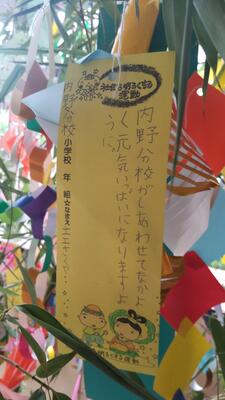 社会を明るくする運動
内野分校がしあわせでなかよ
く元気いっぱいになりますよ
うに。
内野分校小学校 年 組☆なまえ